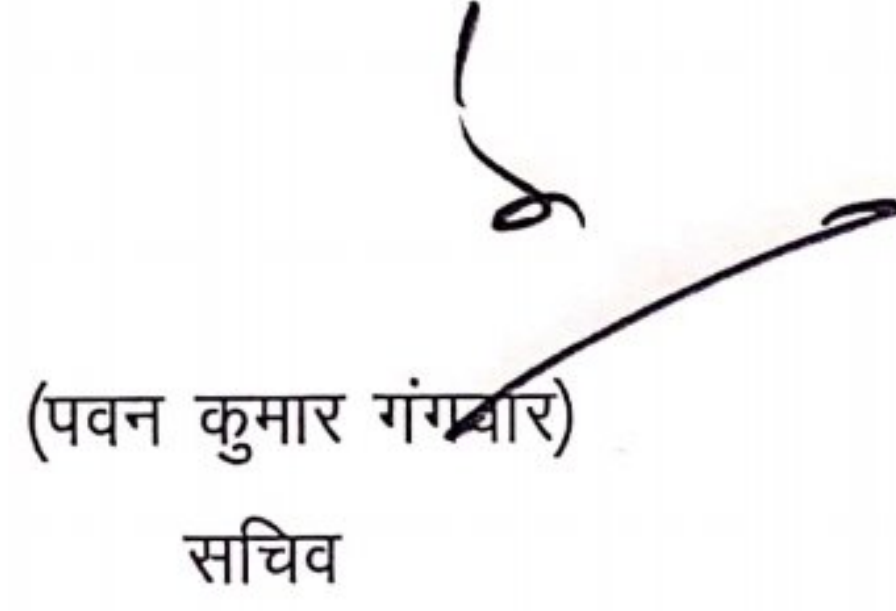 (पवन कुमार गंगवार)
सचिव